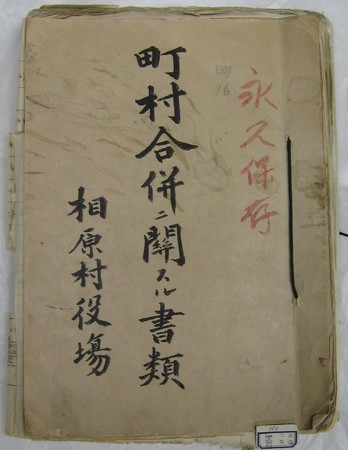 永久保存
16
町村合併ニ關スル書類
相原村役場